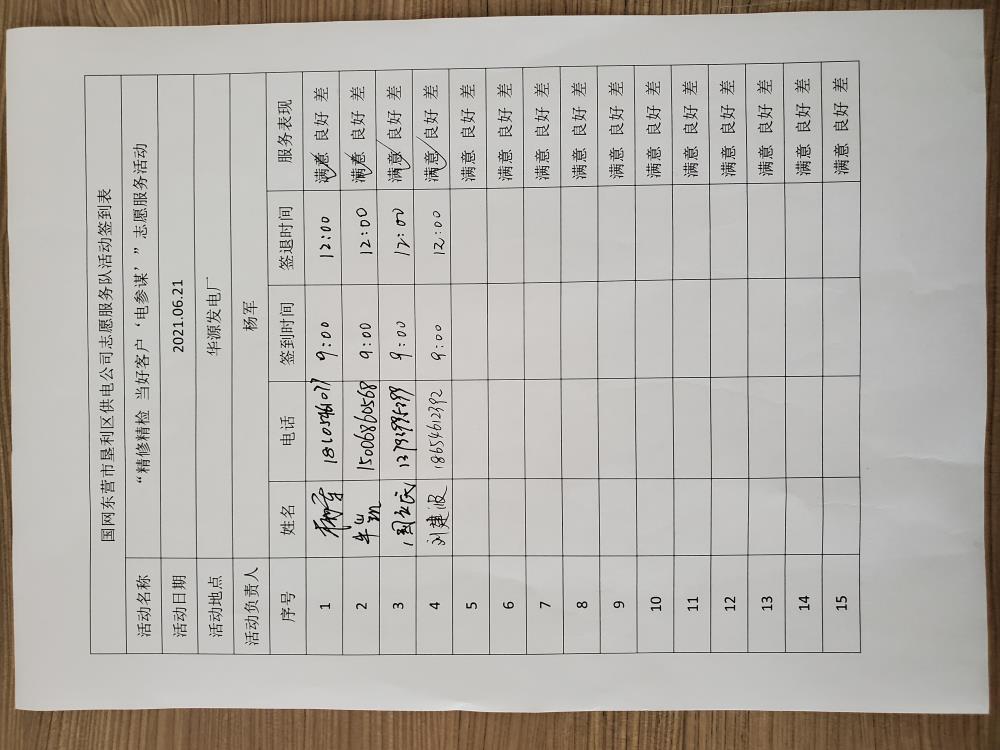 国网东营市垦利区供电公司志愿服务队活动签到表
活动名称 “精修精检 当好客户‘电参谋’”志愿服务活动
活动日期 2021.06.21
活动地点 华源发电厂
活动负责人 杨军
序号 姓名 电话 签到时间 签退时间 服务表现
1 9:00 12:00 满意 良好 差
2 牛凯 15006860568 9:00 12:00 满意 良好 差
3 9:00 12:00 满意 良好 差
4 刘建波 18654612392 9:00 12:00 满意 良好 差
5 满意 良好 差
6 满意 良好 差
7 满意 良好 差
8 满意 良好 差
9 满意 良好 差
10 满意 良好 差
11 满意 良好 差
12 满意 良好 差
13 满意 良好 差
14 满意 良好 差
15 满意 良好 差